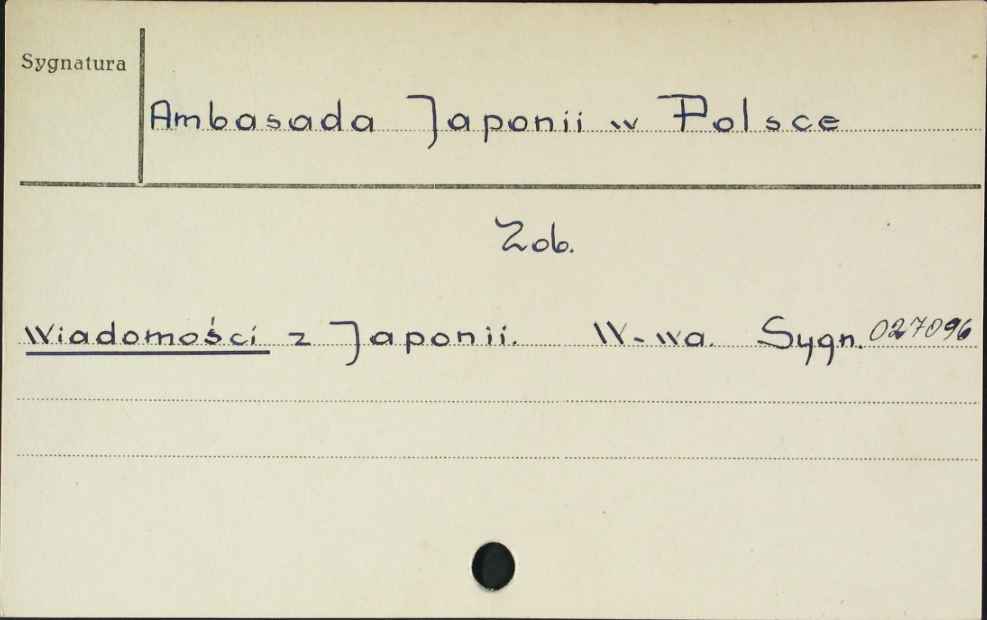 Sygnatura
Ambasada Japonii w Polsce
Zob.
Wiadomości z Japonii. W-wa. Sygn. 027096